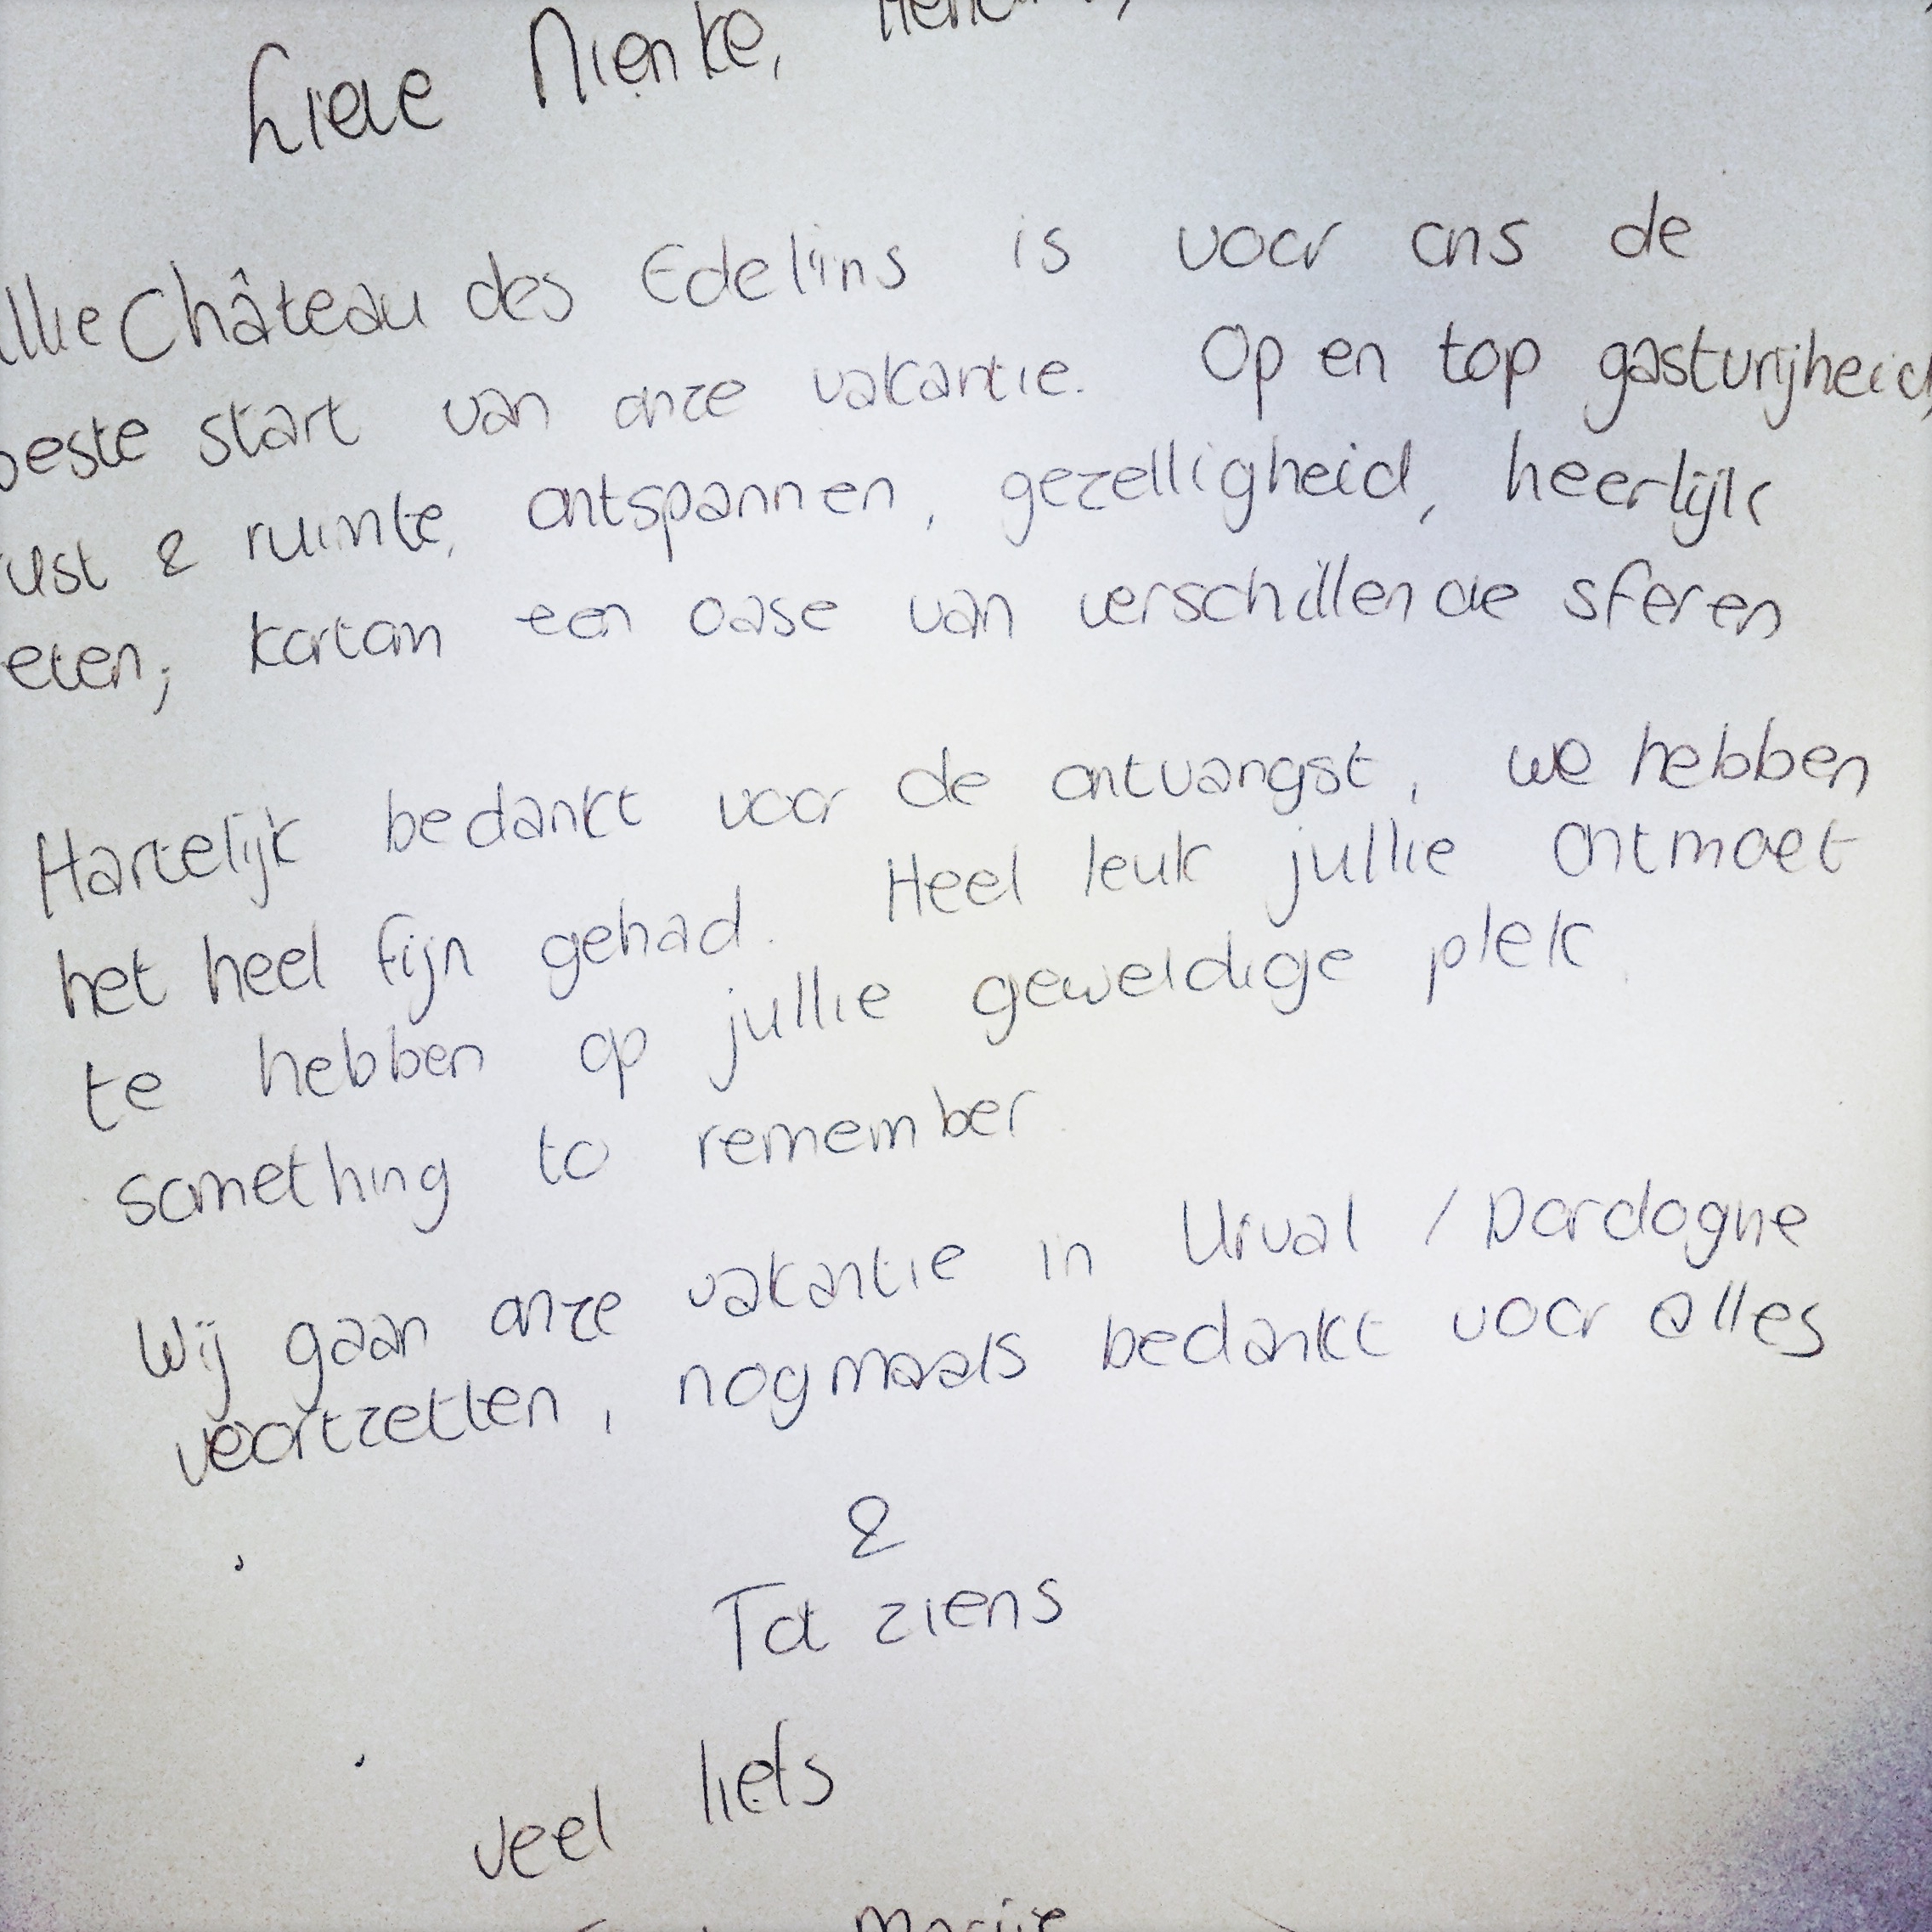 Lieve Nienke,
Château des Edelins is voor ons de
beste start van onze vakantie. Op en top gastvrijheid,
rust & ruimte, ontspannen, gezelligheid, heerlijk
eten; kortom een oase van verschillende sferen
Hartelijk bedankt voor de ontvangst, we hebben
het heel fijn gehad. Heel leuk jullie ontmoet
te hebben op jullie geweldige plek.
something to remember.
Wij gaan onze vakantie in Urval / Dordogne
voortzetten, nogmaals bedankt voor alles
&
Tot ziens
veel liefs